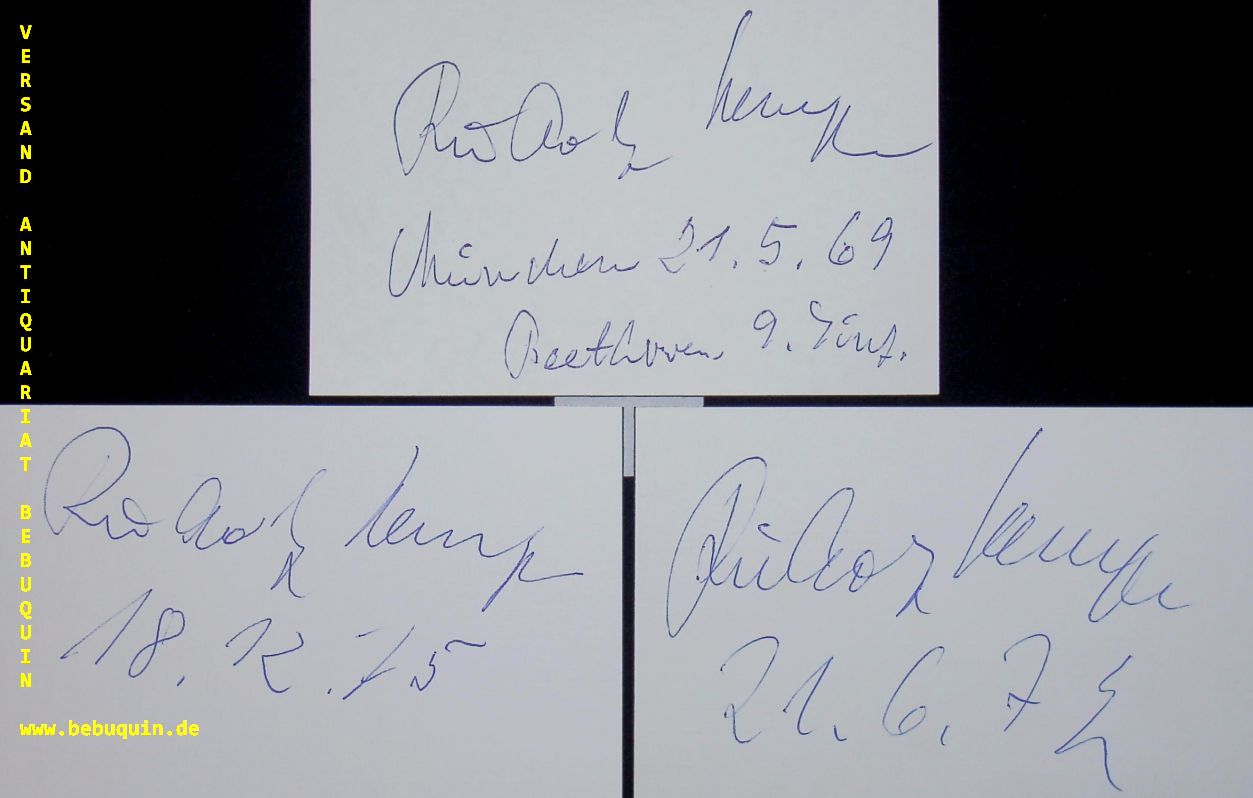 VERSAND ANTIQUARIAT BEBUQUIN
www.bebuquin.de
Rudolf Kempe
München 21.5.69
Beethoven 9. Sinf.
Rudolf Kempe
18.12.75
Rudolf Kempe
21.6.72